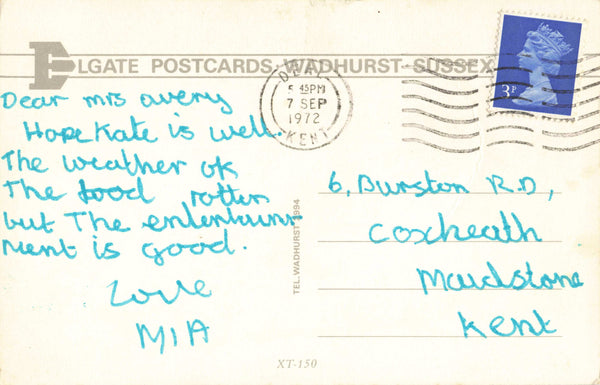 ELGATE POSTCARDS · WADHURST · SUSSEX
DEAL
5 45PM
7 SEP
1972
KENT
3P
Dear mrs avery
Hope Kate is well.
The weather ok
The food rotten
but The entertainn
ment is good.
Love
MIA
TEL. WADHURST 2994
6, Burston RD,
Coxheath
Maidstone
Kent
XT-150